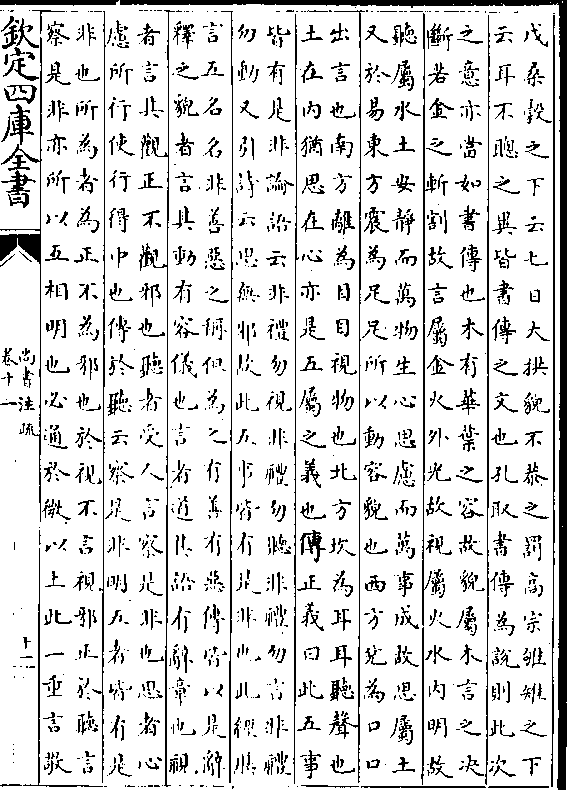 戊桑穀之下云七日大拱貌不恭之罰高宗雊雉之下
云耳不聰之異皆書傳之文也孔取書傳為說則此次
之意亦當如書傳也木有華葉之容故貌屬木言之決
斷若金之斬割故言屬金火外光故視屬火水内明故
聽屬水土安靜而萬物生心思慮而萬事成故思屬土
又於易東方震為足足所以動容貌也西方兌為口口
出言也南方離為目目視物也北方坎為耳耳聽聲也
土在内猶思在心亦是五屬之義也傳正義曰此五事
皆有是非論語云非禮勿視非禮勿聽非禮勿言非禮
勿動又引詩云思無邪故此五事皆有是非也此經歴
言五名名非善惡之稱但為之有善有惡傳皆以是辭
釋之貌者言其動有容儀也言者道其語有辭章也視
者言其觀正不觀邪也聽者受人言察是非也思者心
慮所行使行得中也傳於聽云察是非明五者皆有是
非也所為者為正不為邪也於視不言視邪正於聽言
察是非亦所以互相明也必通於微以上此一重言敬
欽定四庫全書
尚書注疏
卷十一
十二